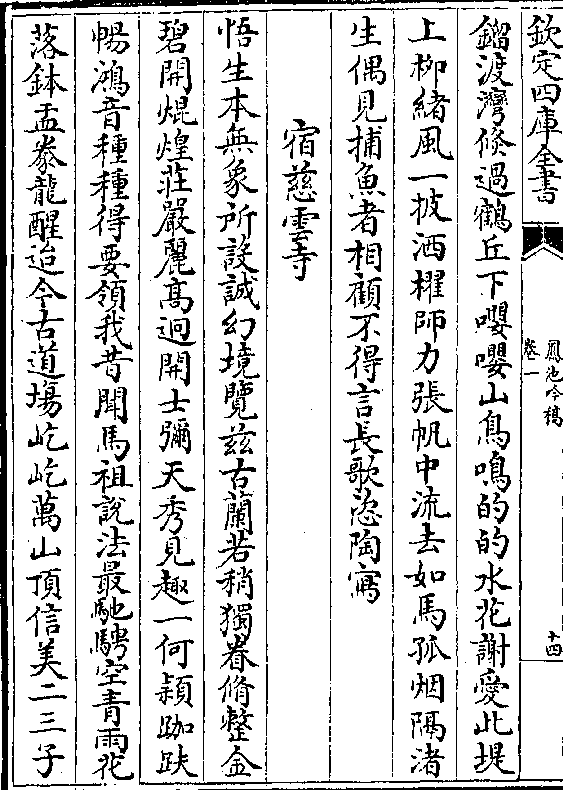 欽定四庫全書
鳳池吟稿
卷一
十四
鎦渡灣倏過鶴丘下嚶嚶山鳥鳴的的水花謝愛此堤
上柳緒風一披洒櫂師力張帆中流去如馬孤烟隔渚
生偶見捕魚者相顧不得言長歌恣陶寫
宿慈雲寺
悟生本無象所設誠幻境覽兹古蘭若稍獨眷脩整金
碧開焜煌莊嚴麗高迥開士彌天秀見趣一何穎跏趺
暢鴻音種種得要領我昔聞馬祖說法最馳騁空青雨花
落鉢盂豢龍醒迨今古道場屹屹萬山頂信美二三子